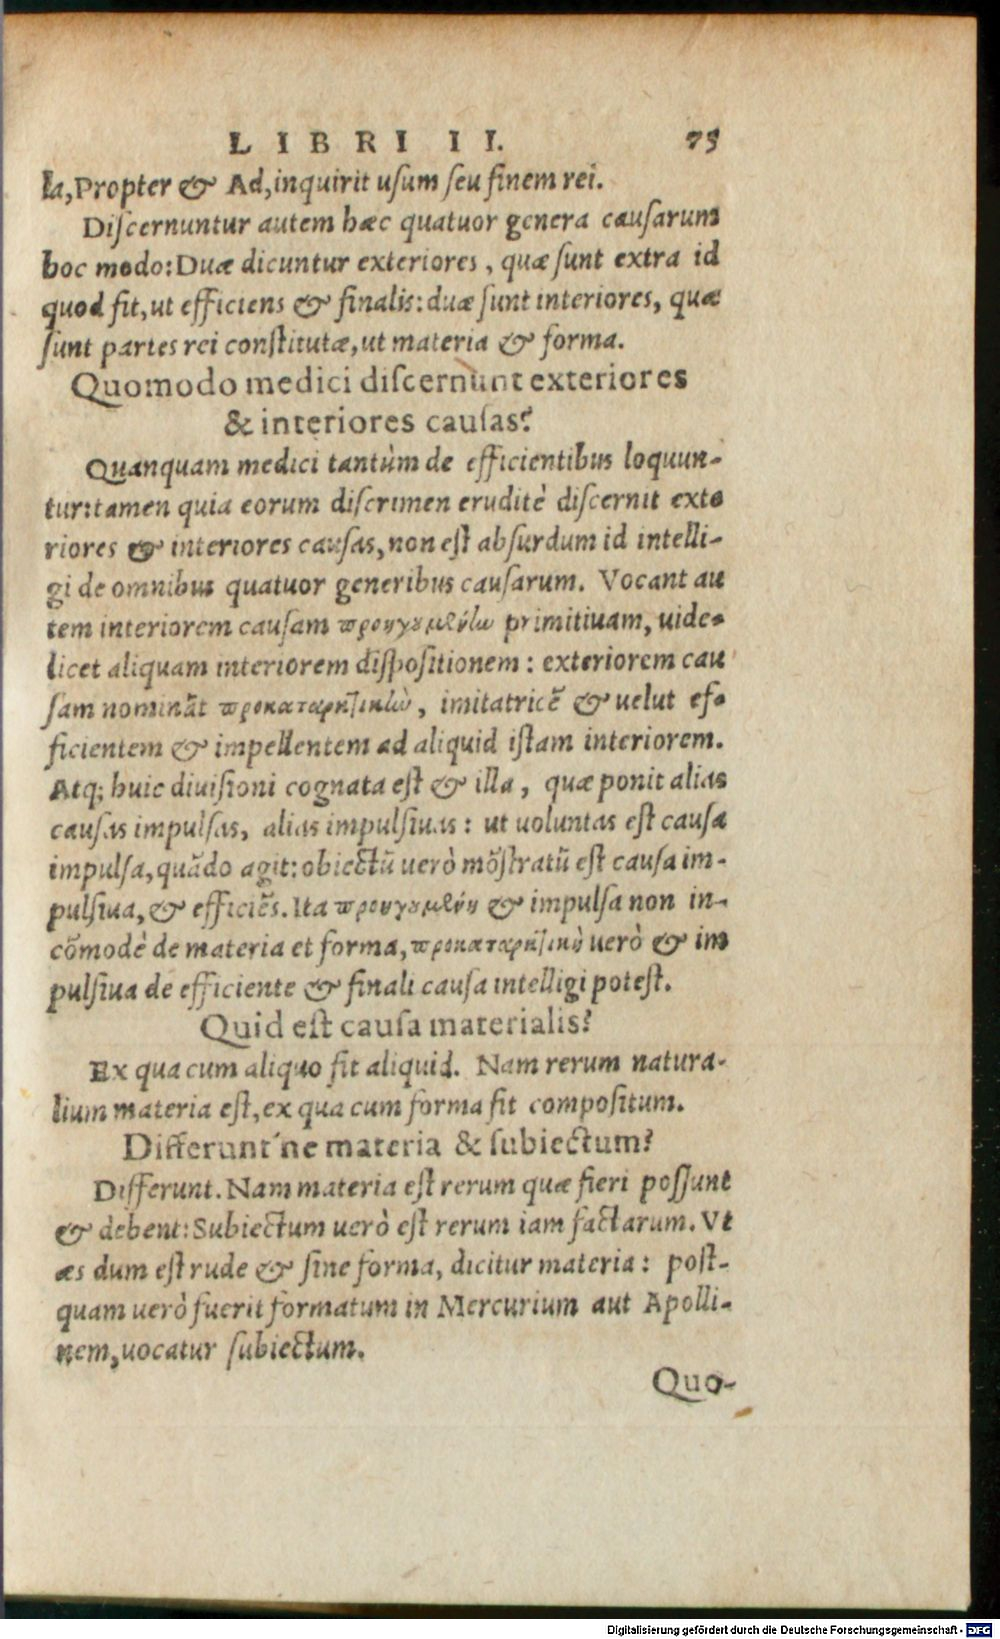 LIBRI II. 75
la, Propter & Ad, inquirit usum seu finem rei.
Discernuntur autem hæc quatuor genera causarum
hoc modo: Duæ dicuntur exteriores, quæ sunt extra id
quod fit, ut efficiens & finalis: duæ sunt interiores, quæ
sunt partes rei constitutæ, ut materia & forma.
Quomodo medici discernunt exteriores
& interiores causas?
Quanquam medici tantùm de efficientibus loquun-
tur: tamen quia eorum discrimen eruditè discernit exte
riores & interiores causas, non est absurdum id intelli-
gi de omnibus quatuor generibus causarum. Vocant au
tem interiorem causam προηγουμένην primitiuam, uide-
licet aliquam interiorem dispositionem: exteriorem cau
sam nominãt προκαταρκτικὴν, imitatricẽ & uelut ef-
ficientem & impellentem ad aliquid istam interiorem.
Atq; huic diuisioni cognata est & illa, quæ ponit alias
causas impulsas, alias impulsiuas: ut uoluntas est causa
impulsa, quãdo agit: obiectũ uerò mõstratũ est causa im-
pulsiua, & efficiẽs. Ita προηγουμένη & impulsa non in-
cõmodè de materia et forma, προκαταρκτικὴ uerò & im
pulsiua de efficiente & finali causa intelligi potest.
Quid est causa materialis?
Ex qua cum aliquo fit aliquid. Nam rerum natura-
lium materia est, ex qua cum forma fit compositum.
Differunt'ne materia & subiectum?
Differunt. Nam materia est rerum quæ fieri possunt
& debent: Subiectum uerò est rerum iam factarum. Vt
æs dum est rude & sine forma, dicitur materia: post-
quam uerò fuerit formatum in Mercurium aut Apolli-
nem, uocatur subiectum.
Quo-
Digitalisierung gefördert durch die Deutsche Forschungsgemeinschaft - DFG